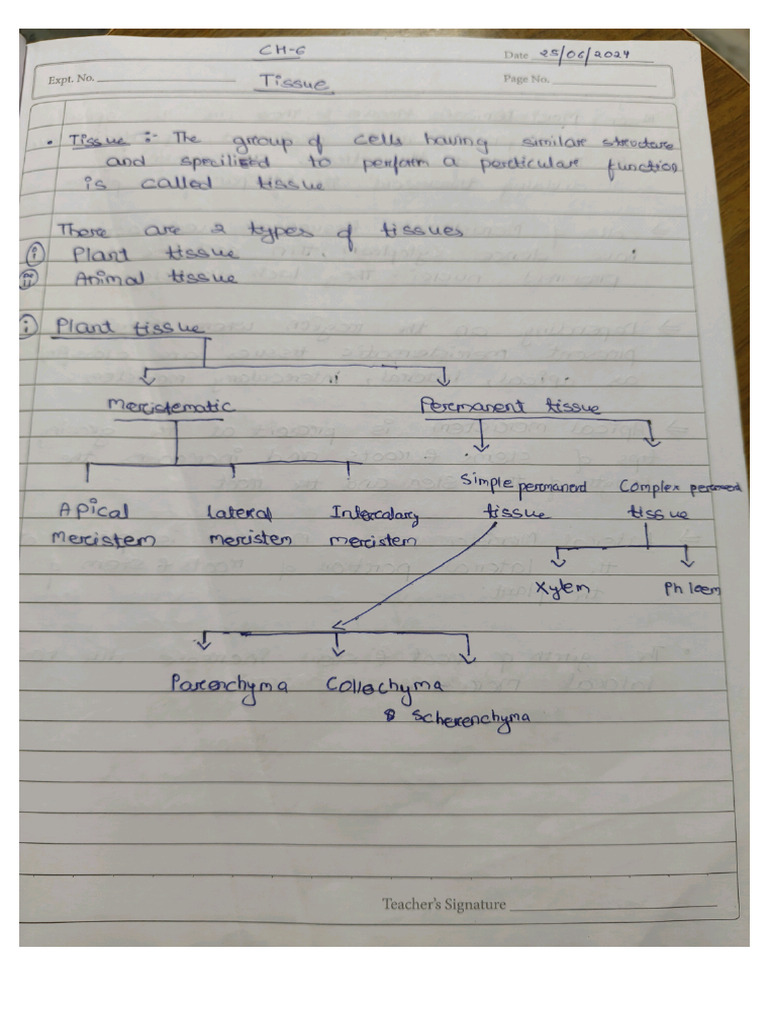 CH-6
Date 25/06/2024
Expt. No.
Tissue
Page No.
• Tissue :- The group of cells having similar structure
and specilized to perform a perticular function
is called tissue
There are 2 types of tissues
i Plant tissue
ii Animal tissue
i Plant tissue
Meristematic Permanent tissue
Simple permanend Complex permanend
Apical Lateral Intercalary tissue tissue
Meristem meristem meristem
Xylem Phloem
Parenchyma Collechyma
Scherenchyma
Teacher's Signature